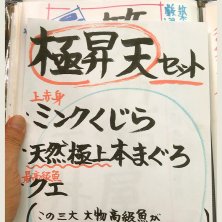 極昇天セット
上赤身
・ミンククじら
・天然極上本まぐろ
最高級魚
・クエ
(この三大 大物高級魚が